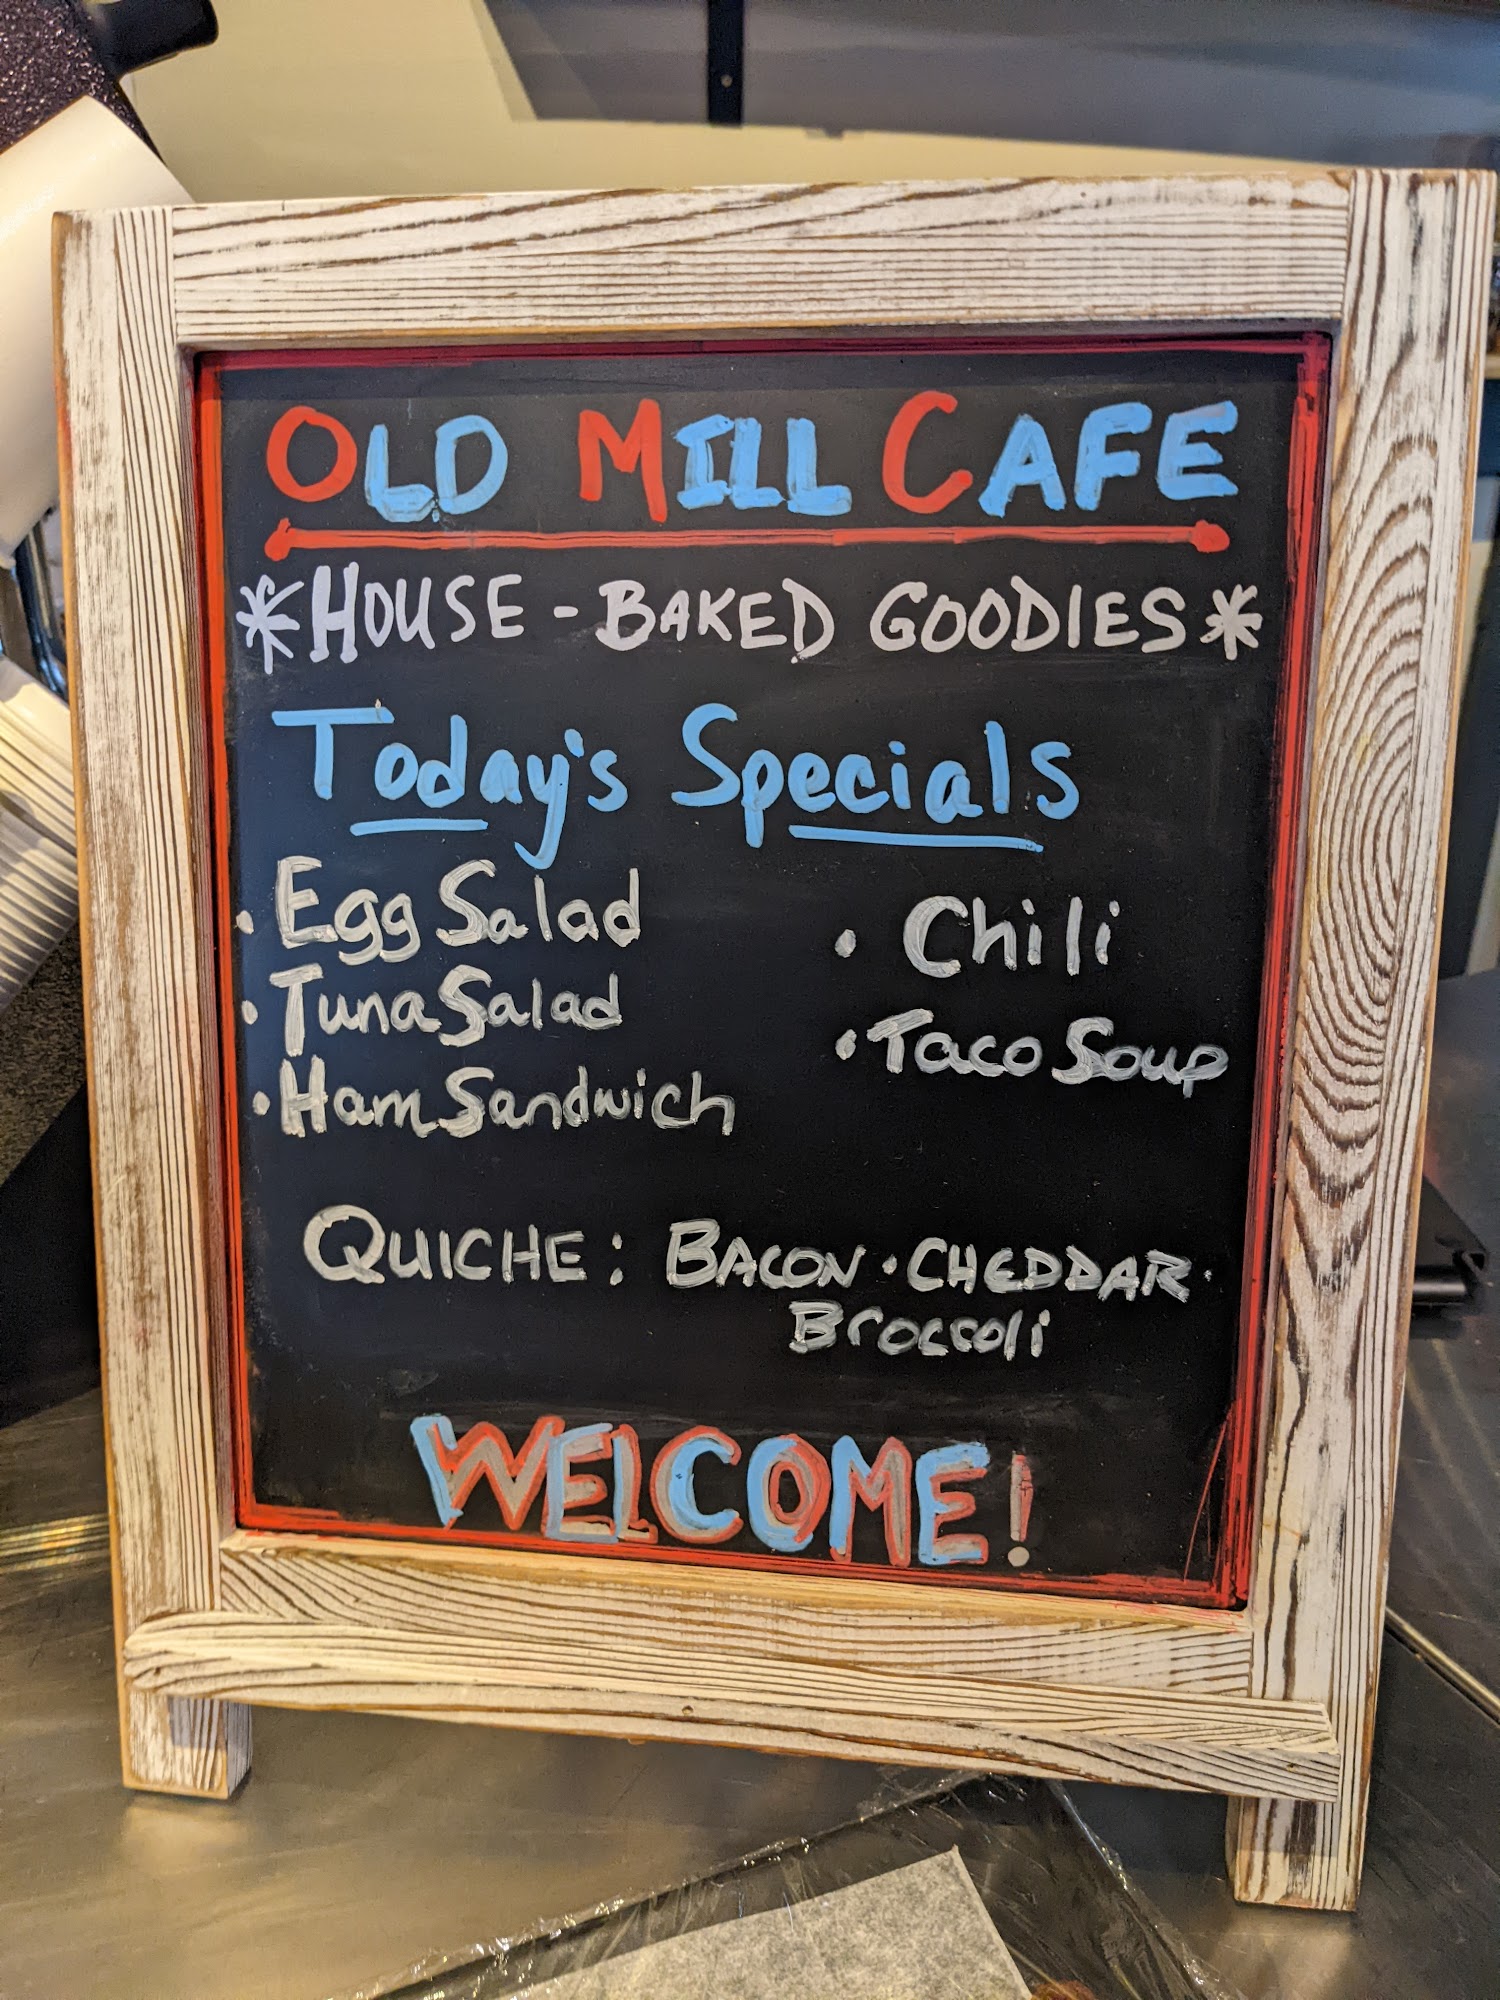 OLD MILL CAFE
*HOUSE-BAKED GOODIES*
Today's Specials
• Egg Salad
• Tuna Salad
• Ham Sandwich
• Chili
• Taco Soup
QUICHE: BACON • CHEDDAR •
Broccoli
WELCOME!